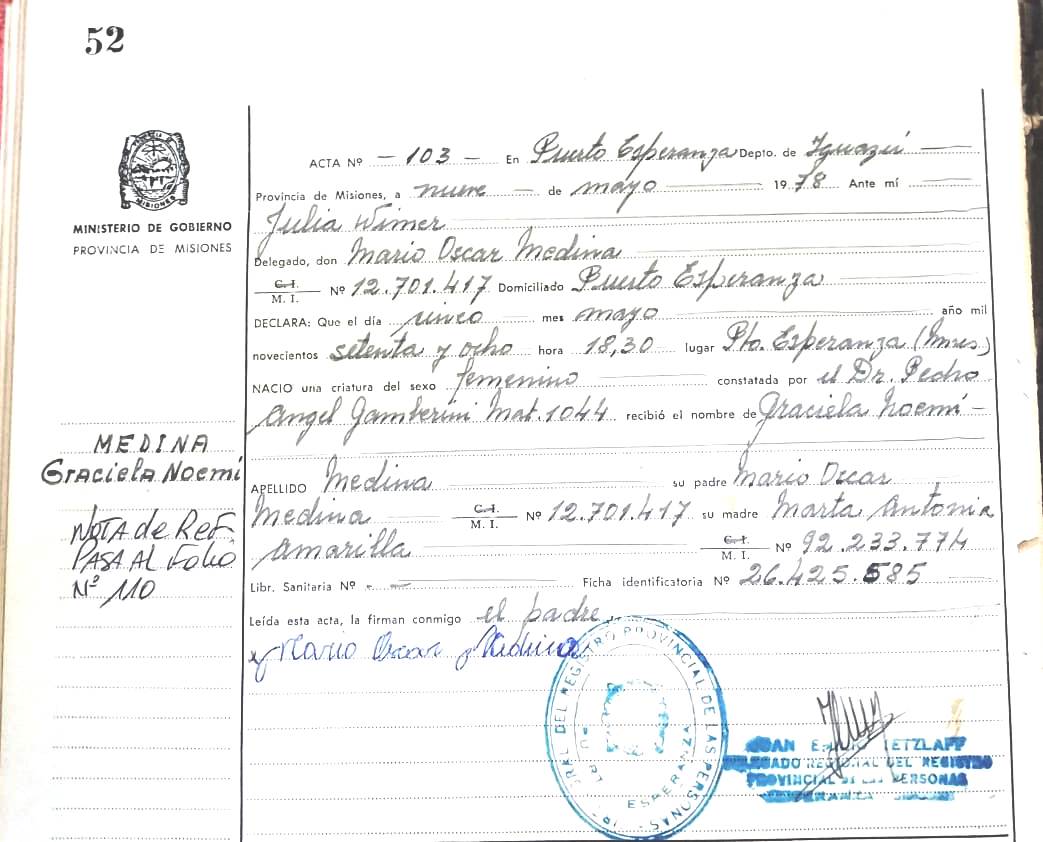 52
MINISTERIO DE GOBIERNO
PROVINCIA DE MISIONES
ACTA Nº - 103 - En Puerto Esperanza Depto. de Iguazú
Provincia de Misiones, a nueve de mayo 1978 Ante mí
Julia Wimer
Delegado, don Mario Oscar Medina
C.I.
M. I. Nº 12.701.417 Domiciliado Puerto Esperanza
DECLARA: Que el día único mes mayo año mil
novecientos setenta y ocho hora 18,30 lugar Pto. Esperanza (Mnes)
NACIO una criatura del sexo femenino constatada por el Dr. Pedro
Angel Gamberini Mat. 1044 recibió el nombre de Graciela Noemí -
MEDINA
Graciela Noemi
APELLIDO Medina su padre Mario Oscar
Medina C.I. M. I. Nº 12.701.417 su madre Marta Antonia
Amarilla C.I. M. I. Nº 92.233.774
NOTA de Ref.
PASA AL Folio
Nº 110
Libr. Sanitaria Nº - - Ficha identificatoria Nº 26.425.585
Leída esta acta, la firman conmigo el padre
Mario Oscar Medina
REGISTRO PROVINCIAL DE LAS PERSONAS
ESPERANZA
DELEGADO REGIONAL DEL REGISTRO
PROVINCIAL DE LAS PERSONAS